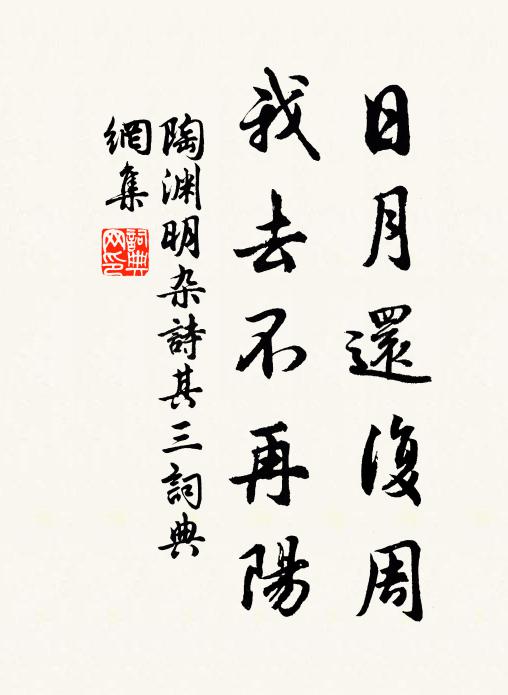 日月還復周
我去不再陽
陶渊明杂詩其三詞典
網集
詞典
网印